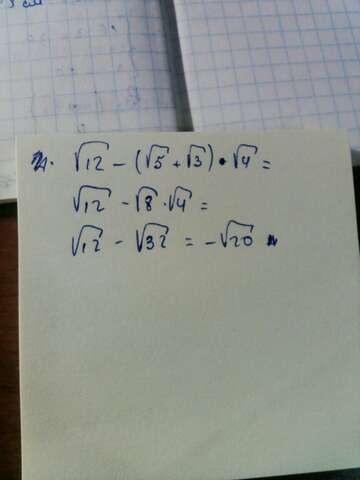 2. √12 - (√5 + √3) • √4 =
√12 - √8 · √4 =
√12 - √32 = -√20